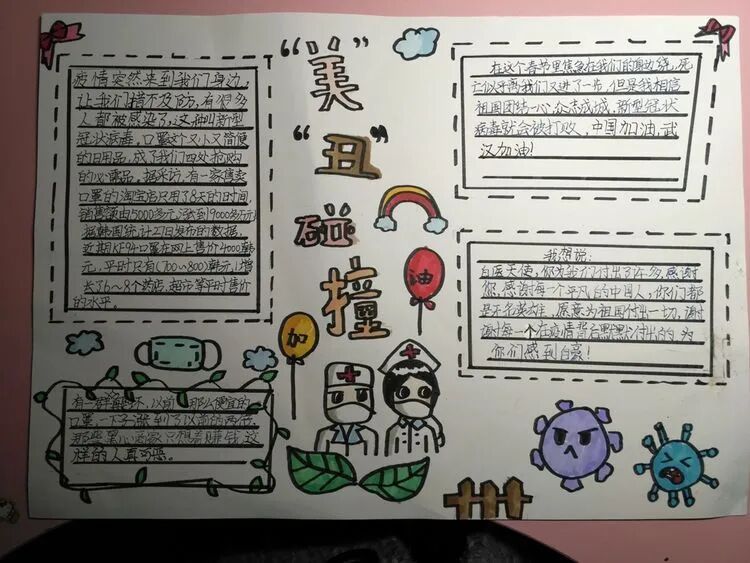 “美”
“丑”
碰
撞
疫情突然来到我们身边,
让我们措不及防,有很多
人都被感染了,这种叫新型
冠状病毒,口罩这个又小又简便
的日用品,成了我们四处抢购
的必需品。据采访,有一家售卖
口罩的淘宝店只用了8天的时间,
销售额由5000多元涨到9000多万元
据韩国统计厅日发布的数据,
近期KF94口罩在网上售价4000韩
元,平时只有(700~800)韩元,增
长了6~8个药店,超市等平时售价
的水平。
有一些坏,以前那么便宜的
口罩,一下子涨到了以前的两倍,
那些黑心商家只想着赚钱,这
样的人真可恶。
在这个春节里焦急在我们的身边绕,死
亡似乎离我们又进了一步,但是我相信
祖国团结一心,众志成城,新型冠状
病毒就会被打败,中国加油,武
汉加油!
我想说:
白医天使,你为我们付出了许多,感谢
你,感谢每一个平凡的中国人,你们都
是不死英雄,愿意为祖国付出一切,谢
谢每一个在疫情背后默默付出的,为
你们感到自豪!
加
油